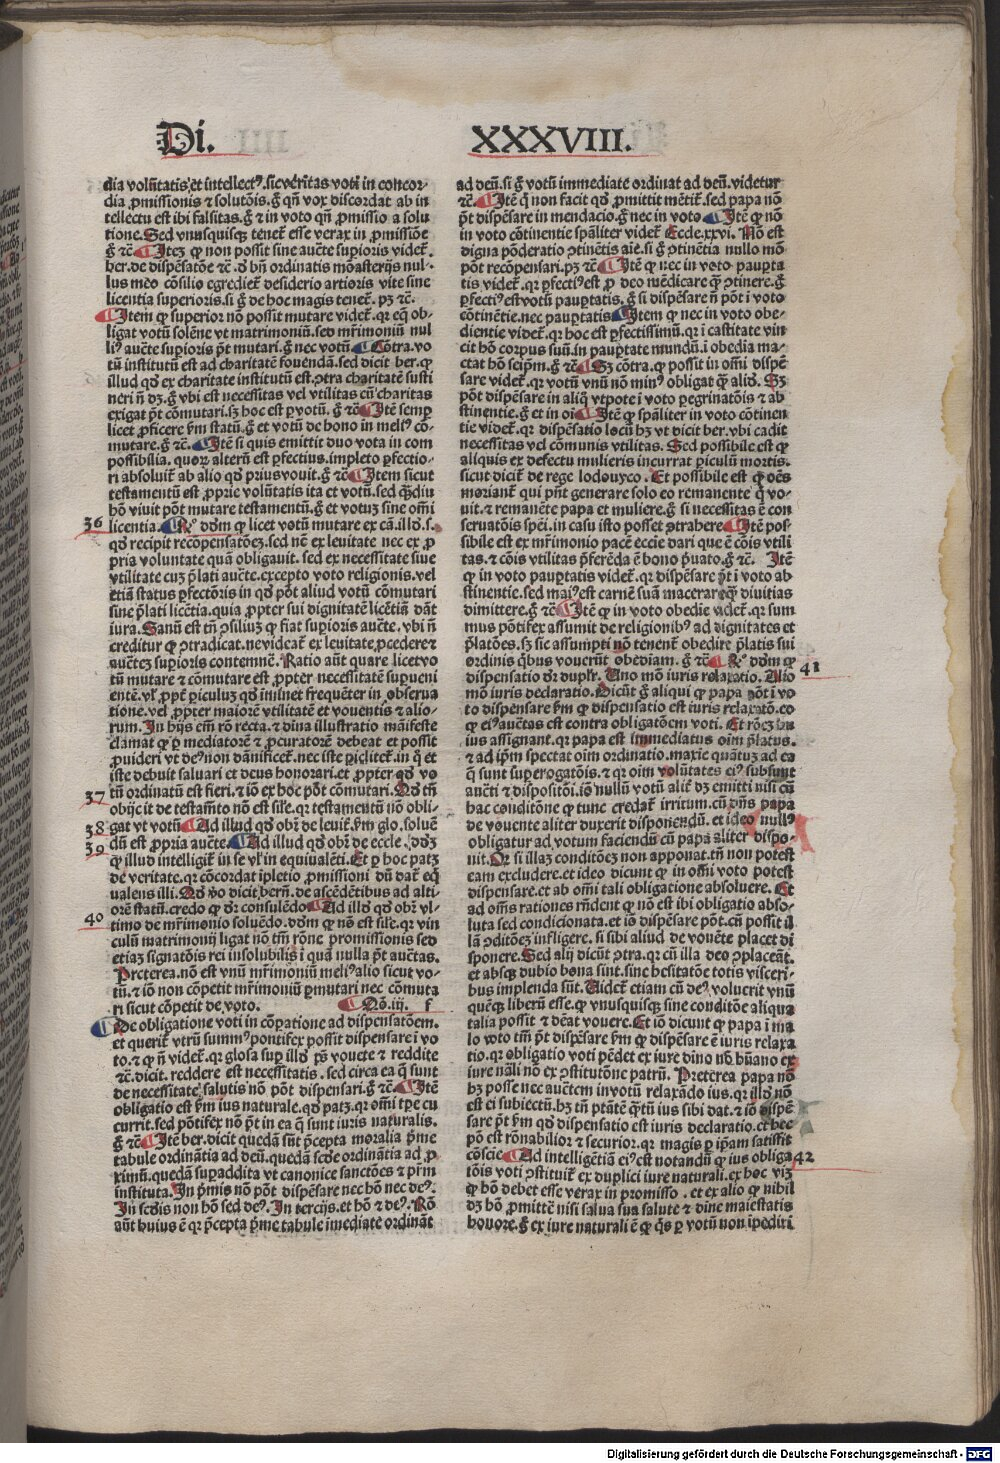 Di. XXXVIII.
dia volũtatis et intellectꝰ. sic veritas voti in concor-
dia ꝓmissionis ⁊ solutõis. g̃ qñ vox discordat ab in
tellectu est ibi falsitas. g̃ ⁊ in voto qñ ꝓmissio a solu
tione. Sed vnusquisqꝫ tenet̃ esse verax in ꝓmissiõe
g̃ ⁊c̃ Itẽ ꝙ non possit sine aucte supioris videt̃.
ber. de dispẽsatõe ⁊c̃. d̃ bñ ordinatis mõasterijs nul-
lus meo cõsilio egrediet̃ desiderio artioris vite sine
licentia superioris. si g̃ de hoc magis tenet̃. pꝫ ⁊c̃.
Item ꝙ superior nõ possit mutare videt̃. qꝛ eq̃ ob-
ligat votũ solẽne vt matrimoniũ. sed mr̃imoniũ nul
liꝰ aucte supioris p̃t mutari. g̃ nec votũ Cõtra. vo
tũ institutũ est ad charitatẽ fouendã. sed dicit ber. ꝙ
illud qd̃ ex charitate institutũ est. ꝯtra charitatẽ susti
neri ñ dꝫ. g̃ vbi est necessitas vel vtilitas cũ charitas
exigat p̃t cõmutari. sꝫ hoc est ꝑ votũ. g̃ ⁊c̃ Itẽ semꝑ
licet ꝓficere ẜm statũ. g̃ et votũ de bono in meliꝰ cõ-
mutare. g̃ ⁊c̃. Itẽ si quis emittit duo vota in com
possibilia. quoꝝ alterũ est ꝑfectius. impleto ꝑfectio-
ri absoluit̃ ab alio qd̃ prius vouit. g̃ ⁊c̃ Item sicut
testamentũ est ꝓprie volũtatis ita et votũ. sed q̃diu
hõ viuit põt mutare testamentũ. g̃ et votuꝫ sine om̃i
36 licentia. Rꝰ. dd̃m ꝙ licet votũ mutare ex cã. illd̃. s.
qd̃ recipit recõpensatõeꝫ. sed nõ ex leuitate nec ex ꝓ
pria voluntate quã obligauit. sed ex necessitate siue
vtilitate cuꝫ p̃lati aucte. excepto voto religionis. vel
etiã status ꝑfectõris in qd̃ põt aliud votũ cõmutari
sine p̃lati licẽtia. quia ꝓpter sui dignitatẽ licẽtiã dãt
iura. Sanũ est tñ ꝯsiliuꝫ ꝙ fiat supioris aucte. vbi ñ
creditur ꝙ ꝯtradicat. ne videat̃ ex leuitate ꝓcedere ⁊
aucteꝫ supioris contemnẽ. Ratio aũt quare licet vo
tũ mutare ⁊ cõmutare est ꝓpter necessitatẽ supueni
entẽ. vl̃ ꝓpt̃ ꝑiculuꝫ qd̃ im̃inet frequẽter in obserua
tione. vel ꝓpter maiorẽ vtilitatẽ et vouentis ⁊ alio-
rum. In hijs em̃ rõ recta. ⁊ dina illustratio mãifeste
clamat ꝙ ꝑ mediatorẽ ⁊ ꝓcuratorẽ debeat et possit
ꝓuideri vt deꝰ non dãnificet̃. nec iste ꝑiclitet̃. in q̃ et
iste debuit saluari et deus honorari. et ꝓpter qd̃ vo
tũ ordinatũ est fieri. ⁊ iõ ex hoc põt cõmutari. Qd̃ tñ
37 obijcit de testam̃to nõ est sil̃e. qꝛ testamentũ nõ obli-
38 gat vt votũ Ad illud qd̃ obr̃ de leuit̃. ẜm glo. soluẽ
39 dũ est ꝓpria aucte. Ad illud qd̃ obr̃ de eccle. dd̃ꝫ
ꝙ illud intelligit̃ in se vl̃ in equiualẽti. Et ꝑ hoc patꝫ
de veritate. qꝛ cõcordat ipletio ꝓmissioni dũ dat̃ eq̃
ualens illi. Qd̃ vo dicit bern̄. de ascẽdẽtibus ad alti-
40 orẽ statũ. credo ꝙ dr̃ consulẽdo Ad illd̃ qd̃ obr̃ vl-
timo de mr̃imonio soluẽdo. dd̃m ꝙ nõ est sil̃e. qꝛ vin
culũ matrimonij ligat nõ tm̃ rõne promissionis sed
etiaꝫ signatõis rei insolubilis i quã nulla p̃t auc̃tas.
Preterea. nõ est vnũ mr̃imoniũ meliꝰ alio sicut vo-
tũ. ⁊ iõ non cõpetit mr̃imoniũ ꝑmutari nec cõmuta
ri sicut cõpetit de voto. Qõ. iij. f
De obligatione voti in cõpatione ad dispensatõem.
et querit̃ vtrũ summꝰ pontifex possit dispensare i vo
to. ⁊ ꝙ ñ videt̃. qꝛ glosa sup illd̃ pꝫ vouete ⁊ reddite
⁊c̃. dicit. reddere est necessitatis. sed circa ea q̃ sunt
de necessitate salutis nõ põt dispensari. g̃ ⁊c̃ Itẽ
obligatio est ẜm ius naturale. qd̃ patꝫ. qꝛ om̃i tꝑe cu
currit. sed põtifex nõ p̃t in ea q̃ sunt iuris naturalis.
g̃ ⁊c̃ Itẽ ber. dicit quedã sũt p̃cepta moralia p̃me
tabule ordinãtia ad deũ. quedã scd̃e ordinãtia ad ꝓ
ximũ. quedã supaddita vt canonice sanctões ⁊ pr̃m
instituta. In p̃mis nõ põt dispẽsare nec hõ nec deꝰ.
In scd̃is non hõ sed deꝰ. In tercijs. et hõ ⁊ deꝰ. Rõ
aũt huius ẽ qꝛ p̃cepta p̃me tabule imediate ordinãt
ad deũ. si g̃ votũ immediate ordinat ad deũ. videtur
⁊c̃. Itẽ q̃ non facit qd̃ ꝓmittit mẽtit̃. sed papa nõ
p̃t dispẽsare in mendacio. g̃ nec in voto Itẽ ꝙ nõ
in voto cõtinentie sp̃aliter videt̃ Eccle. xxvi. Nõ est
digna põderatio ꝯtinẽtis aĩe. si g̃ ꝯtinẽtia nullo mõ
põt recõpensari. pꝫ ⁊c̃ Itẽ ꝙ nec in voto paupta
tis videt̃. qꝛ ꝑfectiꝰ est ꝓ deo mẽdicare qꝫ ꝯtinere. g̃
ꝑfectiꝰ est votũ pauptatis. g̃ si dispẽsare ñ põt i voto
cõtinẽtie. nec pauptatis Item ꝙ nec in voto obe-
dientie videt̃. qꝛ hoc est ꝑfectissimũ. qꝛ i castitate vin
cit hõ corpus suũ. in pauptate mundũ. i obediã ma-
ctat hõ seipm̃. g̃ ⁊c̃ Sꝫ cõtra. ꝙ possit in om̃i dispẽ
sare videt̃. qꝛ votũ vnũ nõ minꝰ obligat qꝫ aliď. Sꝫ
põt dispẽsare in aliq̃ vtpote i voto ꝑegrinatõis ⁊ ab
stinentie. g̃ et in oĩ Itẽ ꝙ sp̃aliter in voto cõtinen
tie videt̃. qꝛ dispẽsatio locũ hꝫ vt dicit ber. vbi cadit
necessitas vel cõmunis vtilitas. Sed possibile est ꝙ
aliquis ex defectu mulieris incurrat ꝑiculũ mortis.
sicut dicit̃ de rege lodouyco. Et possibile est ꝙ oẽs
moriant̃ qui pñt generare solo eo remanente q̃ vo-
uit. ⁊ remanẽte papa et muliere. g̃ si necessitas ẽ con
seruatõis spẽi. in casu isto posset ꝯtrahere Itẽ pos-
sibile est ex mr̃imonio pacẽ eccie dari que ẽ cõis vtili
tas. ⁊ cõis vtilitas p̃ferẽda ẽ bono p̃uato. g̃ ⁊c̃. Itẽ
ꝙ in voto pauptatis videt̃. qꝛ dispẽsare p̃t i voto ab
stinentie. sed maiꝰ est carnẽ suã macerare qꝫ diuitias
dimittere. g̃ ⁊c̃ Itẽ ꝙ in voto obedie videt̃. qꝛ sum
mus põtifex assumit de religionibꝰ ad dignitates et
p̃latões. sꝫ sic assumpti nõ tenent̃ obedire p̃latis sui
ordinis q̃bus vouerũt obediam. g̃ ⁊c̃ Rꝰ. dd̃m ꝙ 41
dispensatio dr̃ duplr̃. Uno mõ iuris relaxatio. Alio
mõ iuris declaratio. Dicũt g̃ aliqui ꝙ papa põt i vo
to dispensare ẜm ꝙ dispensatio est iuris relaxatõ. eo
ꝙ eiꝰ auc̃tas est contra obligatõem voti. Et rõeꝫ hu
ius assignant. qꝛ papa est immediatus oĩm p̃latus.
⁊ ad ipm̃ spectat oĩm ordinatio. maxie quãtuꝫ ad ea
q̃ sunt supererogatõis. ⁊ qꝛ oĩm volũtates eiꝰ subsunt
aucti ⁊ dispositõi. iõ nullũ votũ aliť dꝫ emitti nisi cũ
hac conditõne ꝙ tunc credat̃ irritum. cũ dñs papa
de vouente aliter duxerit disponendũ. et ideo nullꝰ
obligatur ad votum faciendũ cũ papa aliter dispo-
nit. Qꝛ si illaꝫ conditõeꝫ non apponat. tñ non potest
eam excludere. et ideo dicunt ꝙ in om̃i voto potest
dispensare. et ab om̃i tali obligatione absoluere. Et
ad om̃s rationes rñdent ꝙ nõ est ibi obligatio abso-
luta sed condicionata. et iõ dispẽsare põt. cũ possit il
lã ꝯditõeꝫ infligere. si sibi aliud de vouẽte placet di
sponere. Sed alij dicũt ꝯtra. qꝛ cũ illa deo ꝯplaceãt.
et absqꝫ dubio bona sint. sine hesitatõe totis visceri-
bus implenda sũt. Uidet̃ etiam cũ deꝰ voluerit vnũ
quẽqꝫ liberũ esse. ꝙ vnusquisqꝫ sine conditõe aliqua
talia possit ⁊ dẽat vouere. Et iõ dicunt ꝙ papa i nul
lo voto tm̃ p̃t dispẽsare ẜm ꝙ dispẽsare ẽ iuris relaxa
tio. qꝛ obligatio voti pẽdet ex iure dino nõ hũano ex
iure nãli nõ ex ꝯstitutõne patrũ. Preterea papa nõ
hꝫ posse nec auctem in votũ relaxãdo ius. qꝛ illď nõ
est ei subiectũ. hꝫ tñ ptãtẽ q̃tũ ius sibi dat. ⁊ iõ dispẽ
sare p̃t ẜm qd̃ dispensatio est iuris declaratio. et hec
põ est rõnabilior ⁊ securior. qꝛ magis ꝑ ipam satisfit
cõscie. Ad intelligẽtiã eiꝰ est notandũ ꝙ ius obliga 42
tõis voti ꝯstituit̃ ex duplici iure naturali. ex hoc viꝫ
ꝙ hõ debet esse verax in promisso. et ex alio ꝙ nihil
dꝫ hõ ꝓmittẽ nisi salua sua salute ⁊ dine maiestatis
honore. g̃ ex iure naturali ẽ ꝙ q̃s ꝑ votũ non ipediri
Digitalisierung gefördert durch die Deutsche Forschungsgemeinschaft - DFG